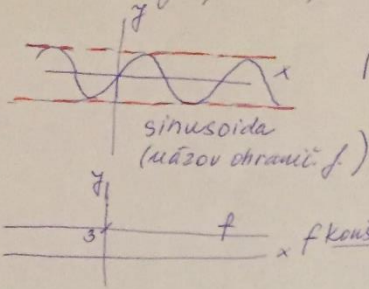 y
x
sinusoida
(názov ohranič. f.)
y
3 f
x f konš